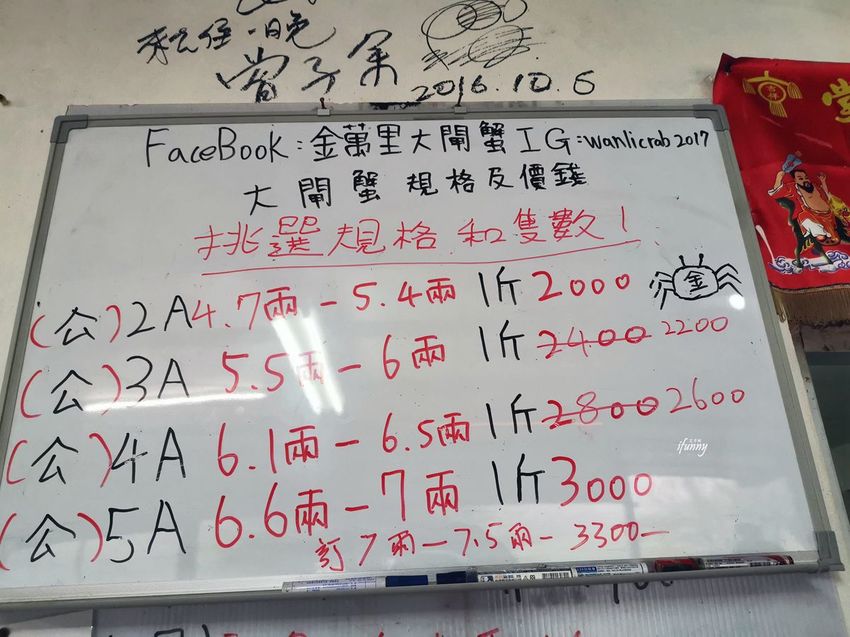 2016.10.6
FaceBook:金萬里大閘蟹 IG:wanlicrab2017
大閘蟹 規格及價錢
挑選規格和隻數!
金
(公)2A 4.7兩-5.4兩 1斤2000
(公)3A 5.5兩-6兩 1斤2400 2200
(公)4A 6.1兩-6.5兩 1斤2800 2600
ifunny
(公)5A 6.6兩-7兩 1斤3000
訂7兩-7.5兩-3300-
吉祥